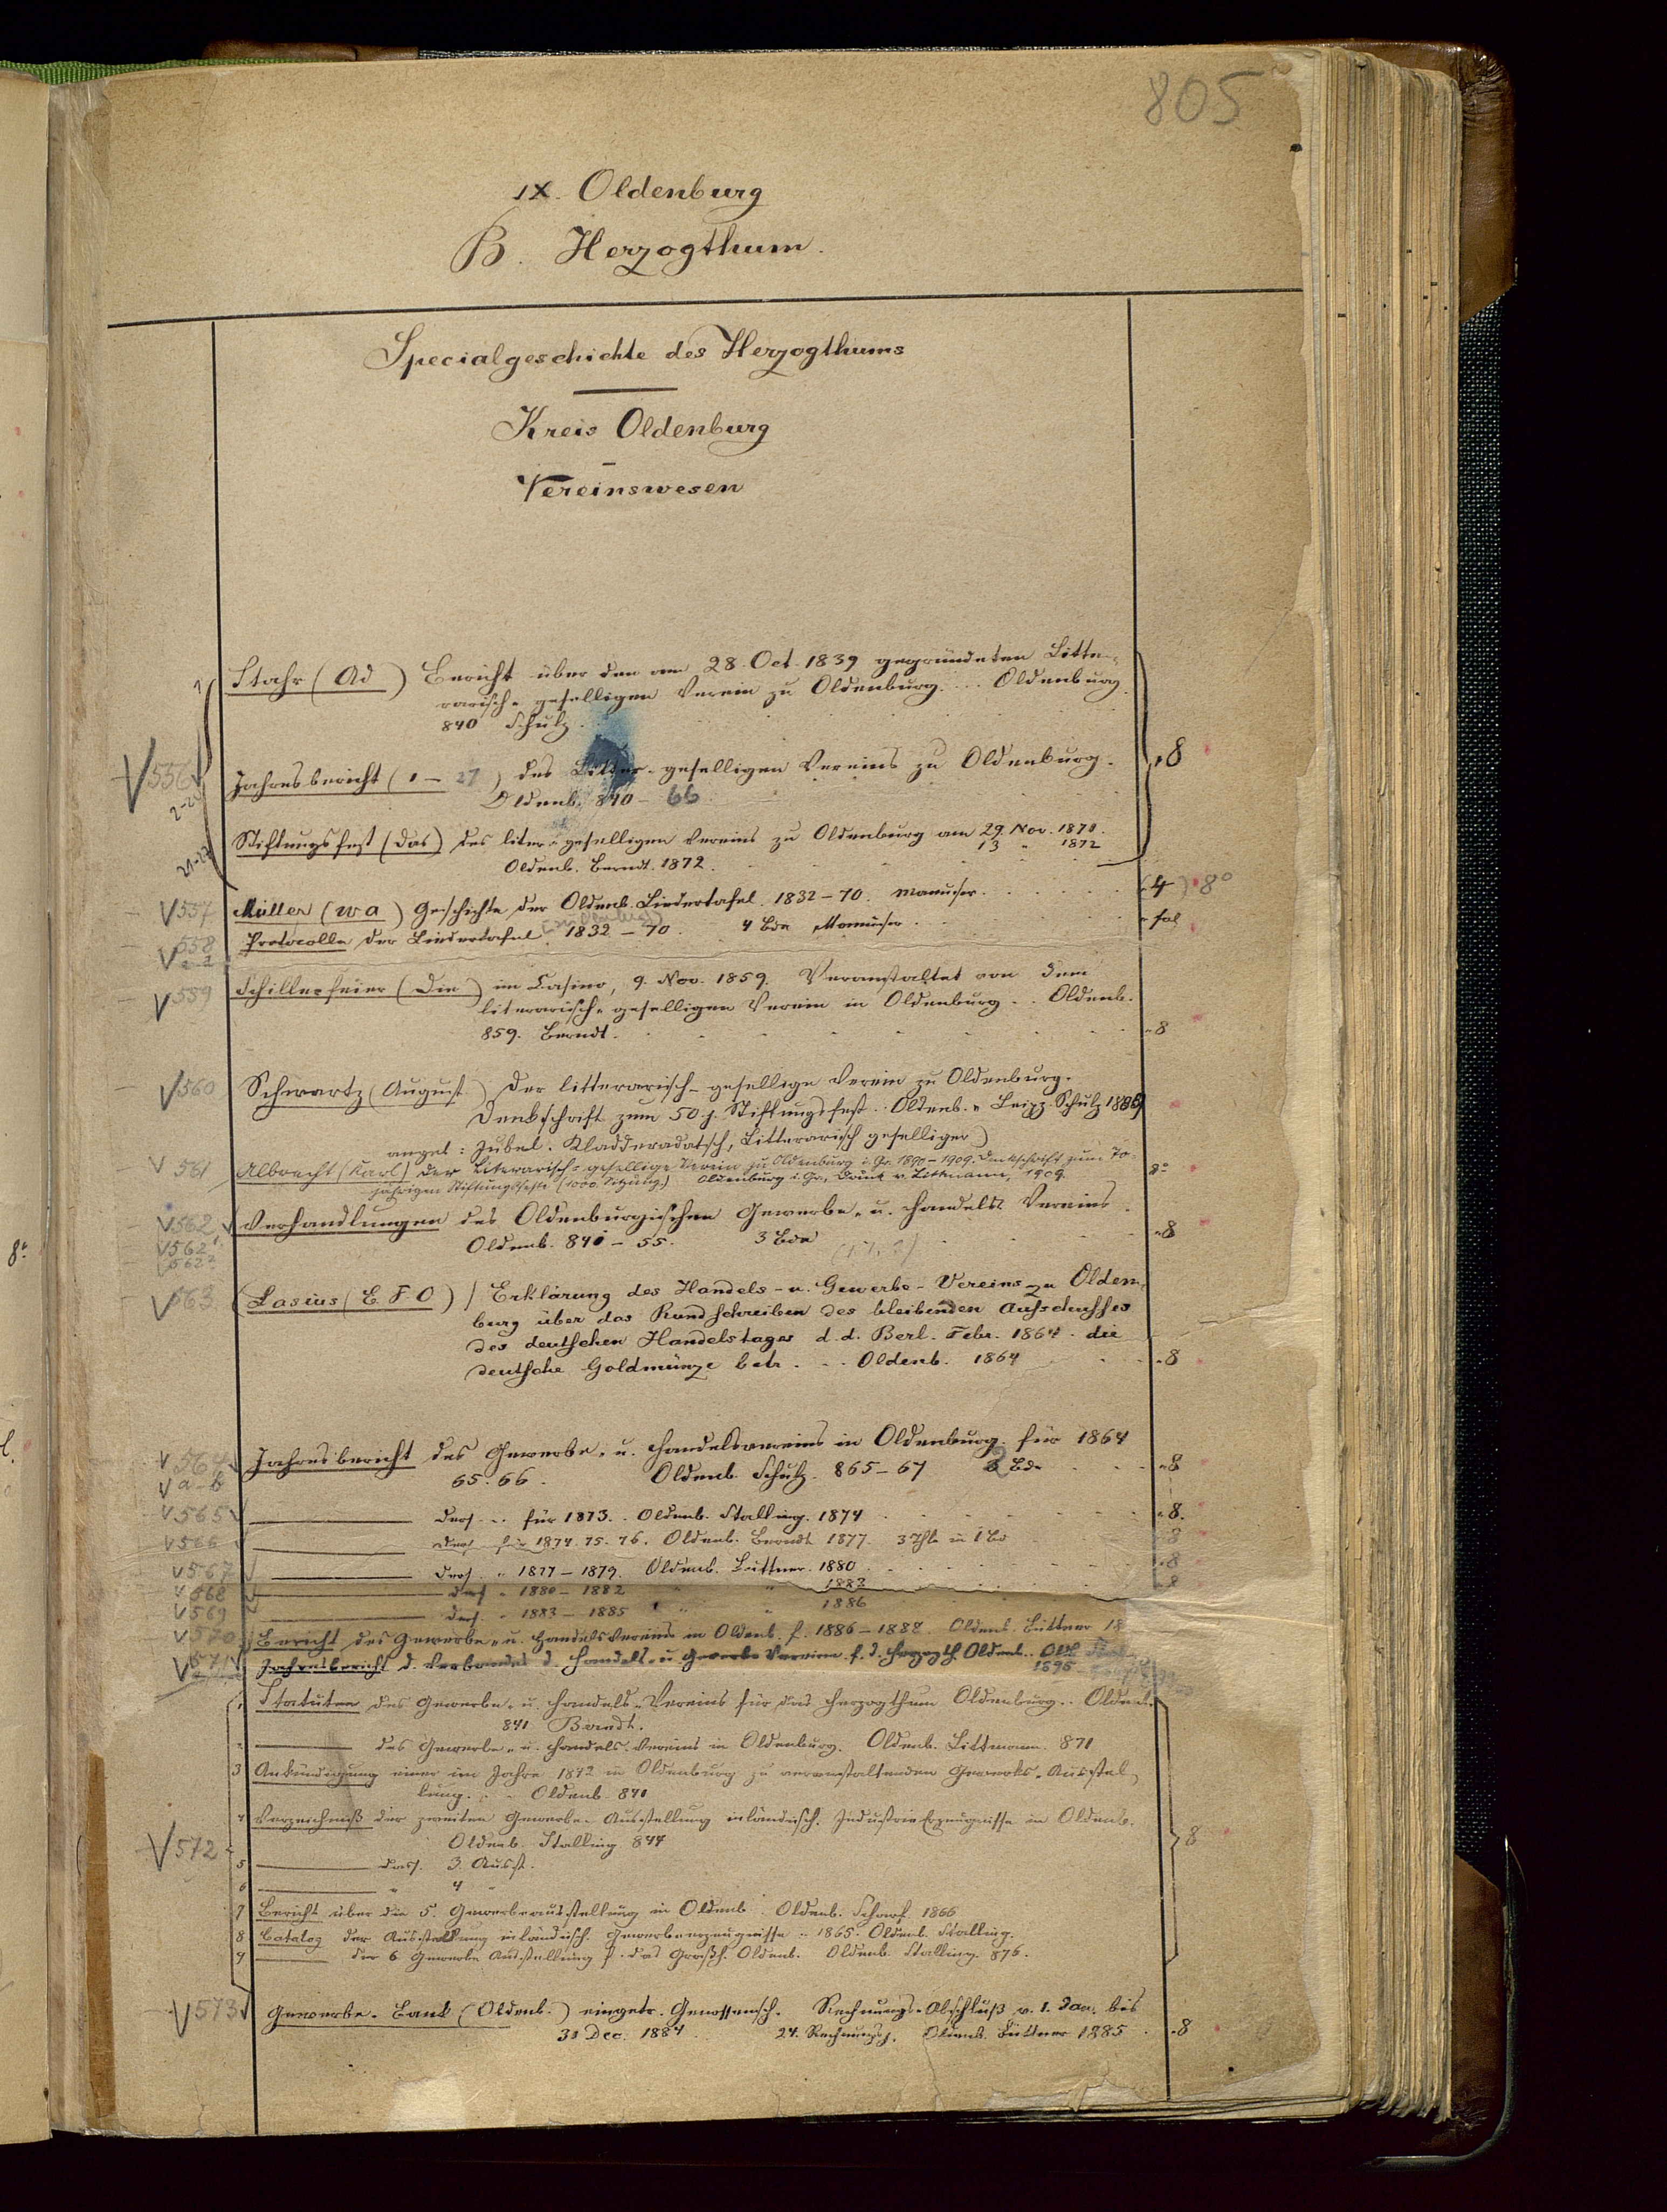 805
IX. Oldenburg
B. Herzogthum.
Specialgeschichte des Herzogthums
Kreis Oldenburg
Vereinswesen
1 Stahr (Ad) Bericht über den am 28. Oct. 1839 gegründeten Litte-
rarisch-geselligen Verein zu Oldenburg... Oldenburg
840 Schulz.
V 556 Jahresbericht (1 - 27) des Litter-geselligen Vereins zu Oldenburg. 8
Oldenb. 840 - 66
Stiftungsfest (Das) des liter-geselligen Vereins zu Oldenburg am 29. Nov. 1870.
13 " 1872
Oldenb. Berndt. 1872.
V 557 Müller (W A) Geschichte der Oldenb. Liedertafel. 1832-70. Manuscr. (4) 8°
V 558 Protocolle der Liedertafel 1832-70. 4 Bde Manuscr. fol
V 559 Schillerfeier (Die) im Casino, 9. Nov. 1859. Veranstaltet von dem
literarisch-geselligen Verein in Oldenburg.. Oldenb.
859. Berndt. 8
V 560 Schwartz (August) Der litterarisch-gesellige Verein zu Oldenburg.
Denkschrift zum 50.j. Stiftungsfest.. Oldenb. u Leipz. Schulz 1889
angeb: Jubel-Kladderadatsch, Litterarisch geselliger)
V 561 Albrecht (Karl) Der Literarisch-gesellige Verein zu Oldenburg i. Gr. 1890-1909. Denkschrift zum 70-
jährigen Stiftungsfeste (1000. Sitzung.) Oldenburg i. Gr., Druck v. Littmann, 1909. 8°
V 562 Verhandlungen des Oldenburgischen Gewerbe- u. Handels Vereins.
V 562 1 Oldenb. 841 - 55. 3 Bde 8
V 562 2
V 563 (Lasius (E. F. O) / Erklärung des Handels- u. Gewerbe-Vereins zu Olden-
burg über das Rundschreiben des bleibenden Ausschusses
des deutschen Handelstages d. d. Berl. Febr. 1864. die
deutsche Goldmünze betr. . . . Oldenb. 1864 8
V 564 Jahresbericht des Gewerbe- u. Handelsvereins in Oldenburg. für 1864
V a-b 65. 66. Oldenb. Schulz. 865-67 Bde 8
V 565 Ders. .. für 1873. . Oldenb. Stalling. 1874 8.
V 566 Ders für 1874. 75. 76. Oldenb. Berndt 1877. 3 Thle in 1 Bd 8
V 567 Ders. " 1877 - 1879. Oldenb. Büttner. 1880 8
V 568 Ders " 1880 - 1882 " " 1883 8
V 569 Ders. " 1883 - 1885 " " 1886
V 570 Bericht des Gewerbe- u. Handelsvereins in Oldenb. f. 1886-1888. Oldenb. Büttner 18
V 571 Jahresbericht d. Verbandes d. Handels- u Gewerbe Vereine f. d. Herzogth. Oldenb..
1895
1 Statuten des Gewerbe- u. Handels-Vereins für das Herzogthum Oldenburg.. Oldenb.
841 Berndt.
2 des Gewerbe- u. Handels-Vereins in Oldenburg. Oldenb. Littmann. 871
3 Ankündigung einer im Jahre 1842 in Oldenburg zu veranstaltenden Gewerbs-Ausstel-
lung. . . Oldenb. 841
4 Verzeichniß der zweiten Gewerbe-Ausstellung inländisch. Industrie Erzeugnisse in Oldenb.
V 572 Oldenb. Stalling 844 8
5 dass. 3. Ausst.
6 " 4 "
7 Bericht über die 5. Gewerbeausstellung in Oldenb.. Oldenb. Scharf. 1866
8 Catalog der Ausstellung inländisch. Gewerbeerzeugnisse .. 1865. Oldenb. Stalling.
9 der 6 Gewerbe Ausstellung f. das Großh. Oldenb. Oldenb. Stalling. 876.
V 573 Gewerbe-Bank (Oldenb.) eingetr. Genossensch. Rechnungs-Abschluß v. 1. Jan. bis
31 Dec. 1884 24. Rechnungsj. Oldenb. Büttner 1885 8